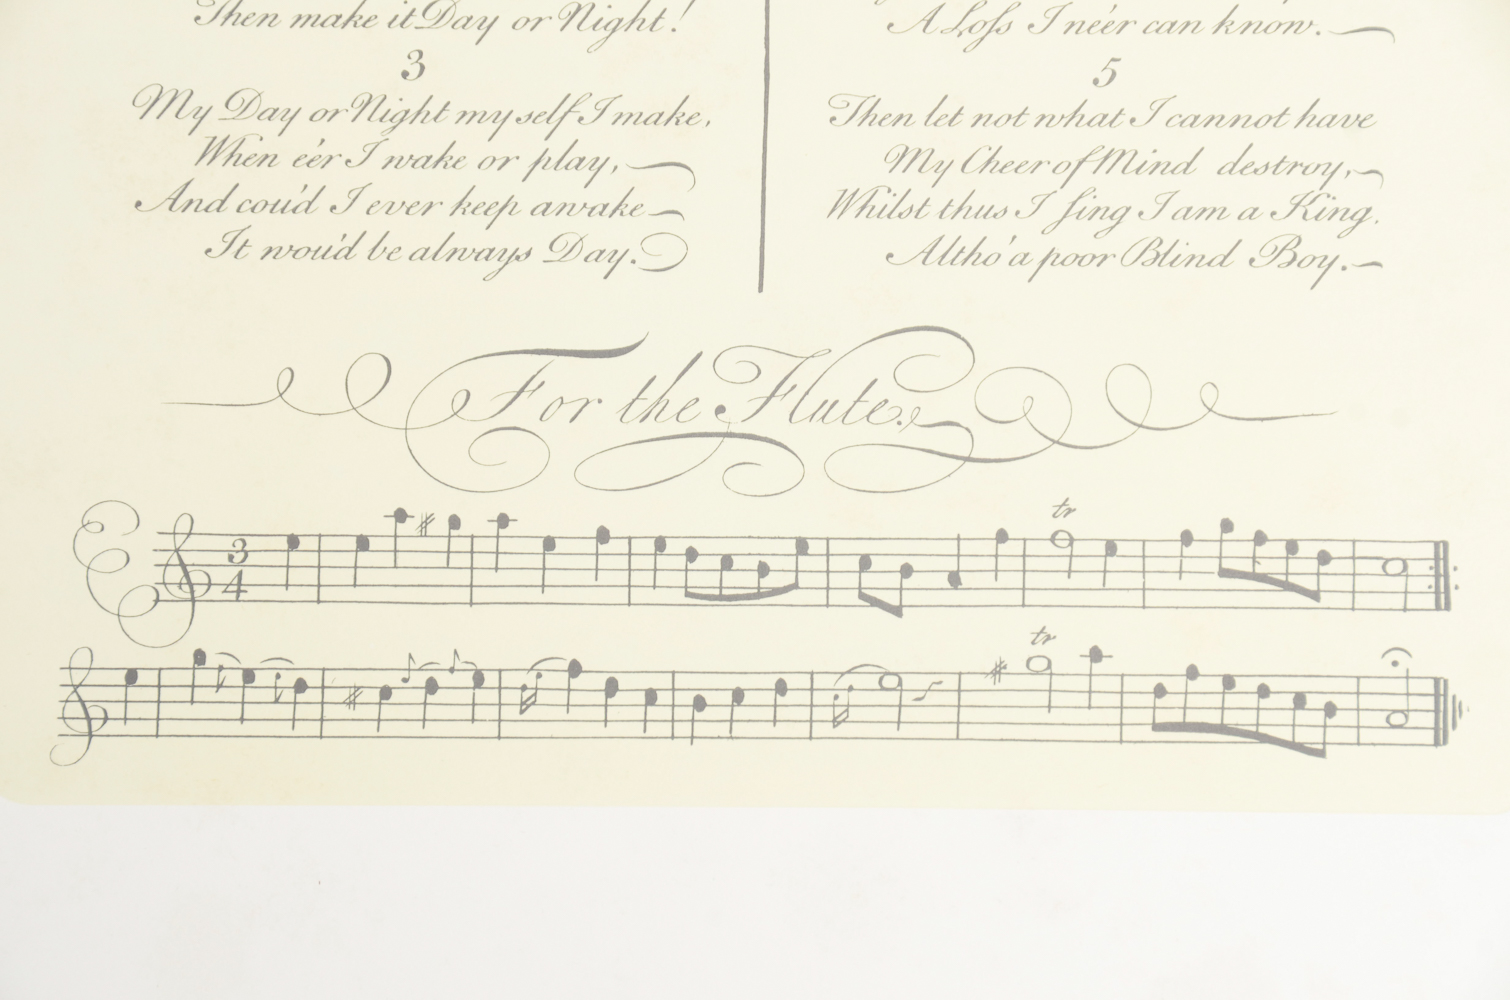 Then make it Day or Night!
3
My Day or Night my self I make,
When e'er I wake or play,
And cou'd I ever keep awake
It wou'd be always Day.
A Loſs I ne'er can know.
5
Then let not what I cannot have
My Cheer of Mind destroy,
Whilst thus I ſing I am a King,
Altho' a poor Blind Boy.
For the Flute.
tr
3
4
tr